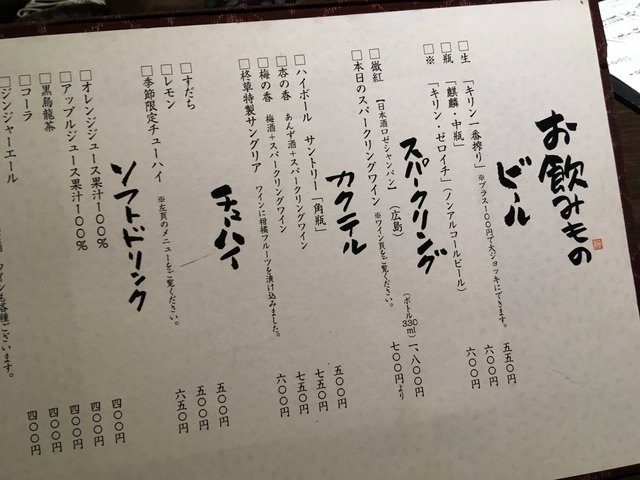 お飲みもの
ビール
□生 「キリン一番搾り」 ※プラス一〇〇円で大ジョッキにできます。 五五〇円
□瓶 「麒麟・中瓶」 六〇〇円
□※ 「キリン・ゼロイチ」(ノンアルコールビール) 六〇〇円
スパークリング
□微紅 【日本酒ロゼシャンパン】 (広島) (ボトル330ml) 一、八〇〇円
□本日のスパークリングワイン ※ワイン頁をご覧ください。 七〇〇円より
カクテル
□ハイボール サントリー「角瓶」 五〇〇円
□杏の香 あんず酒+スパークリングワイン 七五〇円
□梅の香 梅酒+スパークリングワイン 七五〇円
□柊草特製サングリア ワインに柑橘フルーツを漬け込みました。 六〇〇円
チューハイ
□すだち 五〇〇円
□レモン 五〇〇円
□季節限定チューハイ ※左頁のメニューをご覧ください。 六五〇円
ソフトドリンク
□オレンジジュース果汁一〇〇% 四〇〇円
□アップルジュース果汁一〇〇% 四〇〇円
□黒烏龍茶 四〇〇円
□コーラ 四〇〇円
□ジンジャーエール 四〇〇円
ワインも各種ございます。